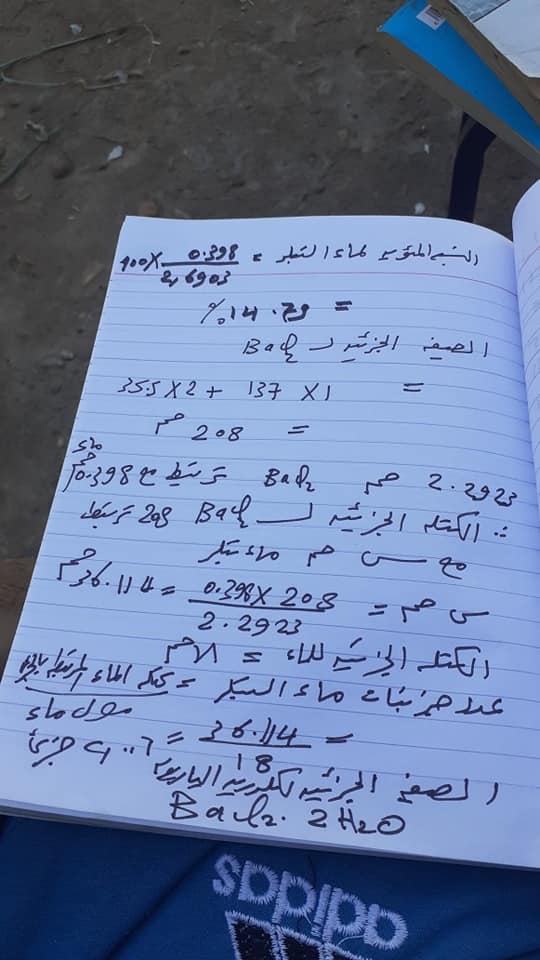 النسبة المئوية لماء التبلر = 0.398 / 2,6903 × 100
= 14.79 %
الصيغه الجزئيه لـ BaCl₂
= 1 × 137 + 2 × 35.5
= 208 جم
2.2923 جم BaCl₂ ترتبط مع 0.398 جم ماء
∴ الكتله الجزئيه لـ BaCl₂ 208 ترتبط
مع س جم ماء تبلر
س جم = 0.398 × 208 / 2.2923 = 36.114 جم
الكتله الجزئيه للماء = ١٨ جم
عدد جزيئات ماء التبلر = كتله الماء المرتبط / مول ماء
= 36.114 / 18 = ٢,٠٠٦ جزئ
الصغيه الجزئيه لكلوريد الباريوم
BaCl₂. 2H₂O
adidas